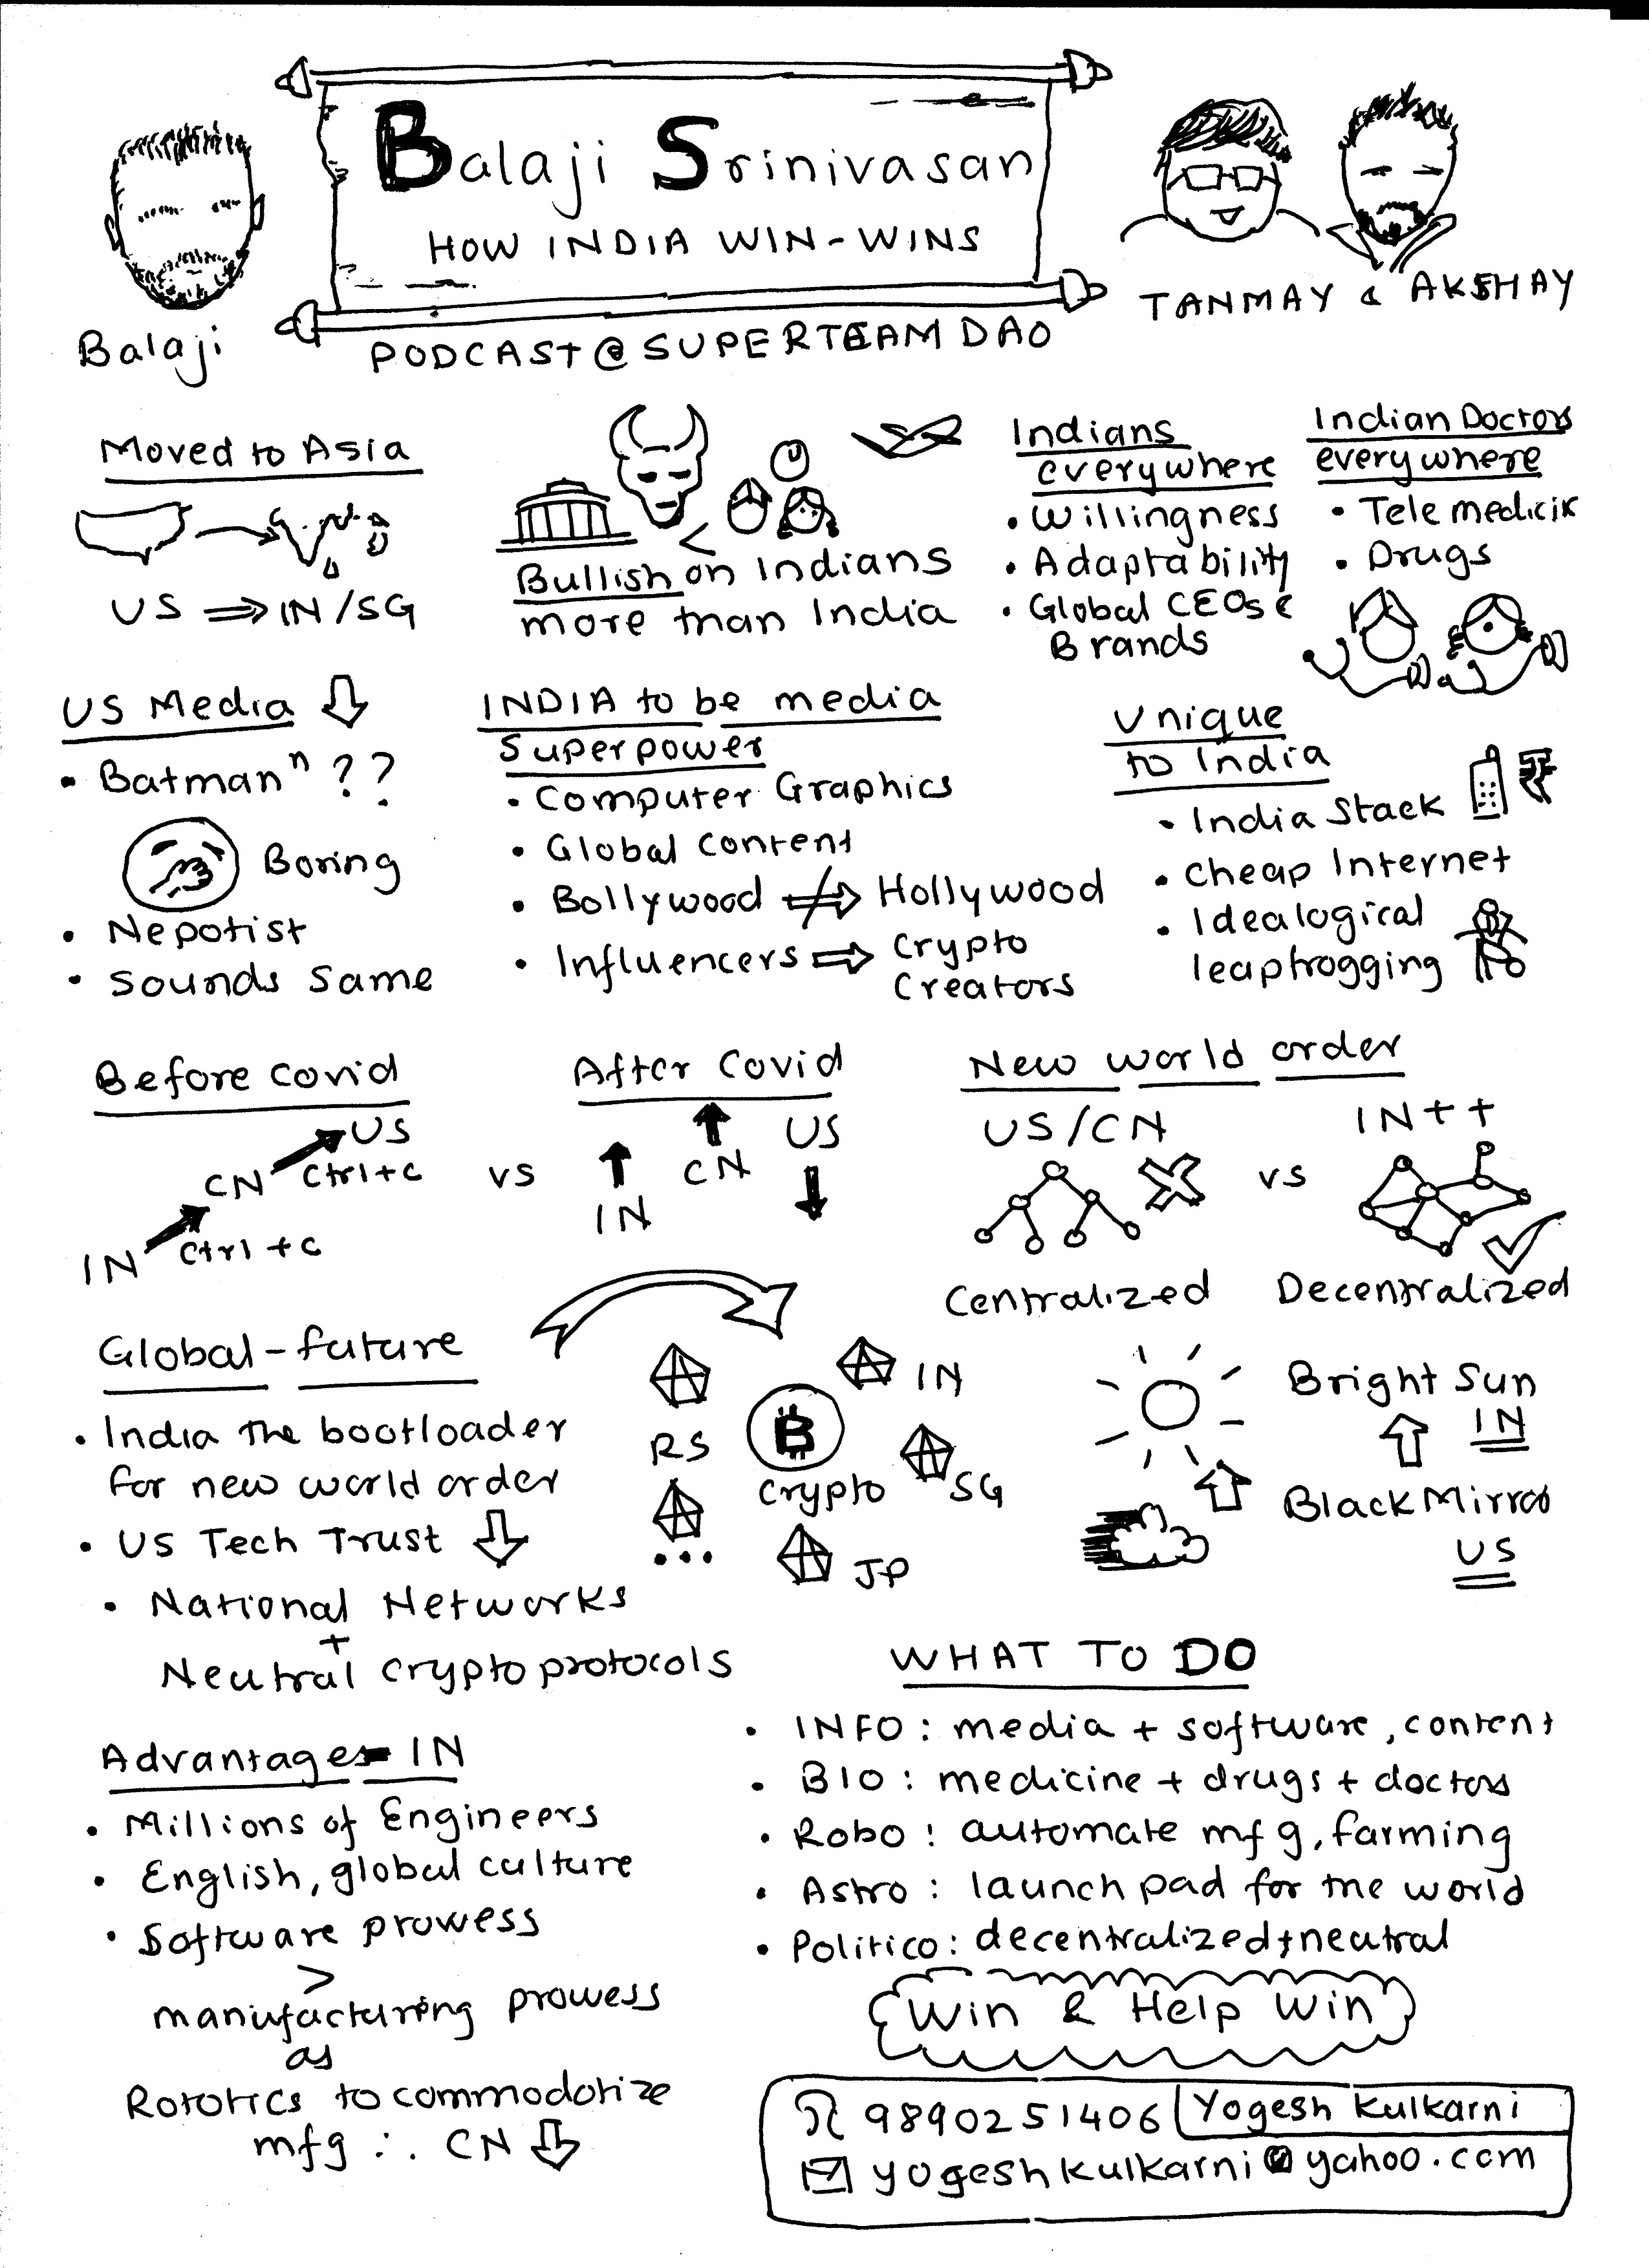 Balaji Srinivasan
HOW INDIA WIN-WINS
Balaji
PODCAST @ SUPERTEAM DAO
TANMAY & AKSHAY
Moved to Asia
US ⇒ IN/SG
Bullish on Indians
more than India
Indians
everywhere
• Willingness
• Adaptability
• Global CEOs &
Brands
Indian Doctors
everywhere
• Tele medicin
• Drugs
US Media ⇩
• Batmanⁿ ??
Boring
• Nepotist
• Sounds Same
INDIA to be media
Superpower
• Computer Graphics
• Global Content
• Bollywood ⇏ Hollywood
• Influencers ⇒ Crypto
Creators
Unique
to India
• India Stack ₹
• Cheap Internet
• Idealogical
leapfrogging
Before covid
US
CN Ctrl+C
IN Ctrl+C
vs
After Covid
IN CN US
New world order
US/CN vs IN++
Centralized Decentralized
Global-future
• India the bootloader
for new world order
• US Tech Trust ⇩
• National Networks
+
Neutral crypto protocols
RS
IN
₿
Crypto
SG
JP
...
Bright Sun
IN
Black Mirror
US
Advantages IN
• Millions of Engineers
• English, global culture
• Software prowess
>
manufacturing prowess
as
Rototics to commodotize
mfg ∴ CN ⇩
WHAT TO DO
• INFO: media + software, content
• BIO: medicine + drugs + doctors
• Robo: automate mfg, farming
• Astro: launch pad for the world
• Politico: decentralized + neutral
Win & Help Win
9890251406 Yogesh Kulkarni
yogeshkulkarni@yahoo.com